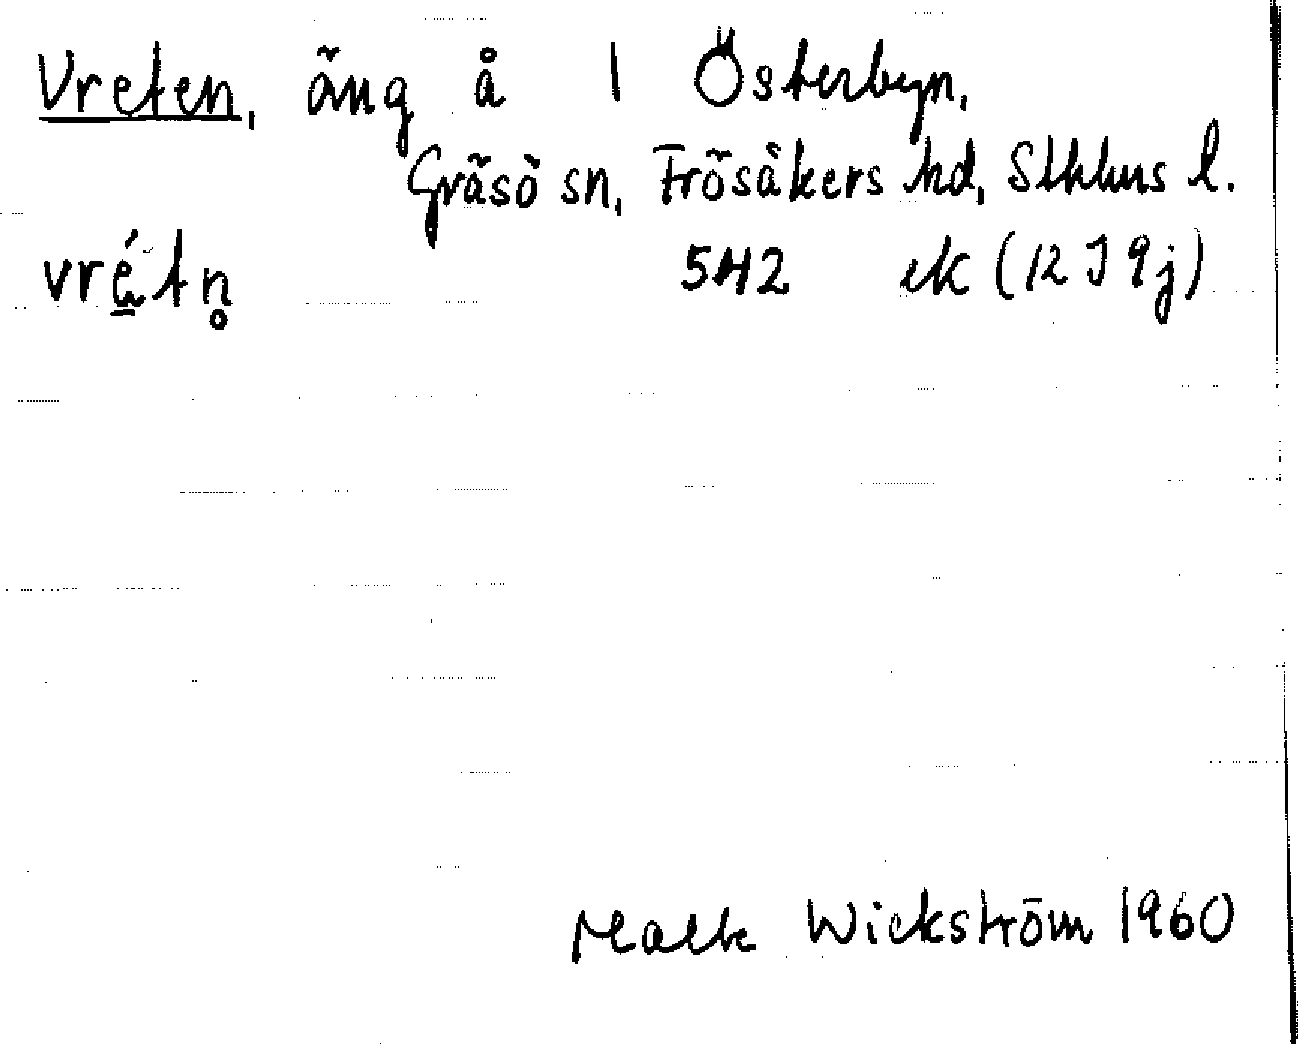 Vreten, äng å 1 Österbyn,
Gräsö sn, Frösåkers hd, Sthlms l.
vrétn̥ 542 ek (12 I 9 j)
Wickström 1960